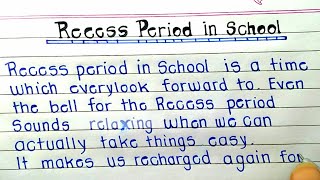 Recess Period in School
Recess period in School is a time
which everylook forward to. Even
the bell for the Recess period
Sounds relaxing when we can
actually take things easy.
It makes us recharged again for